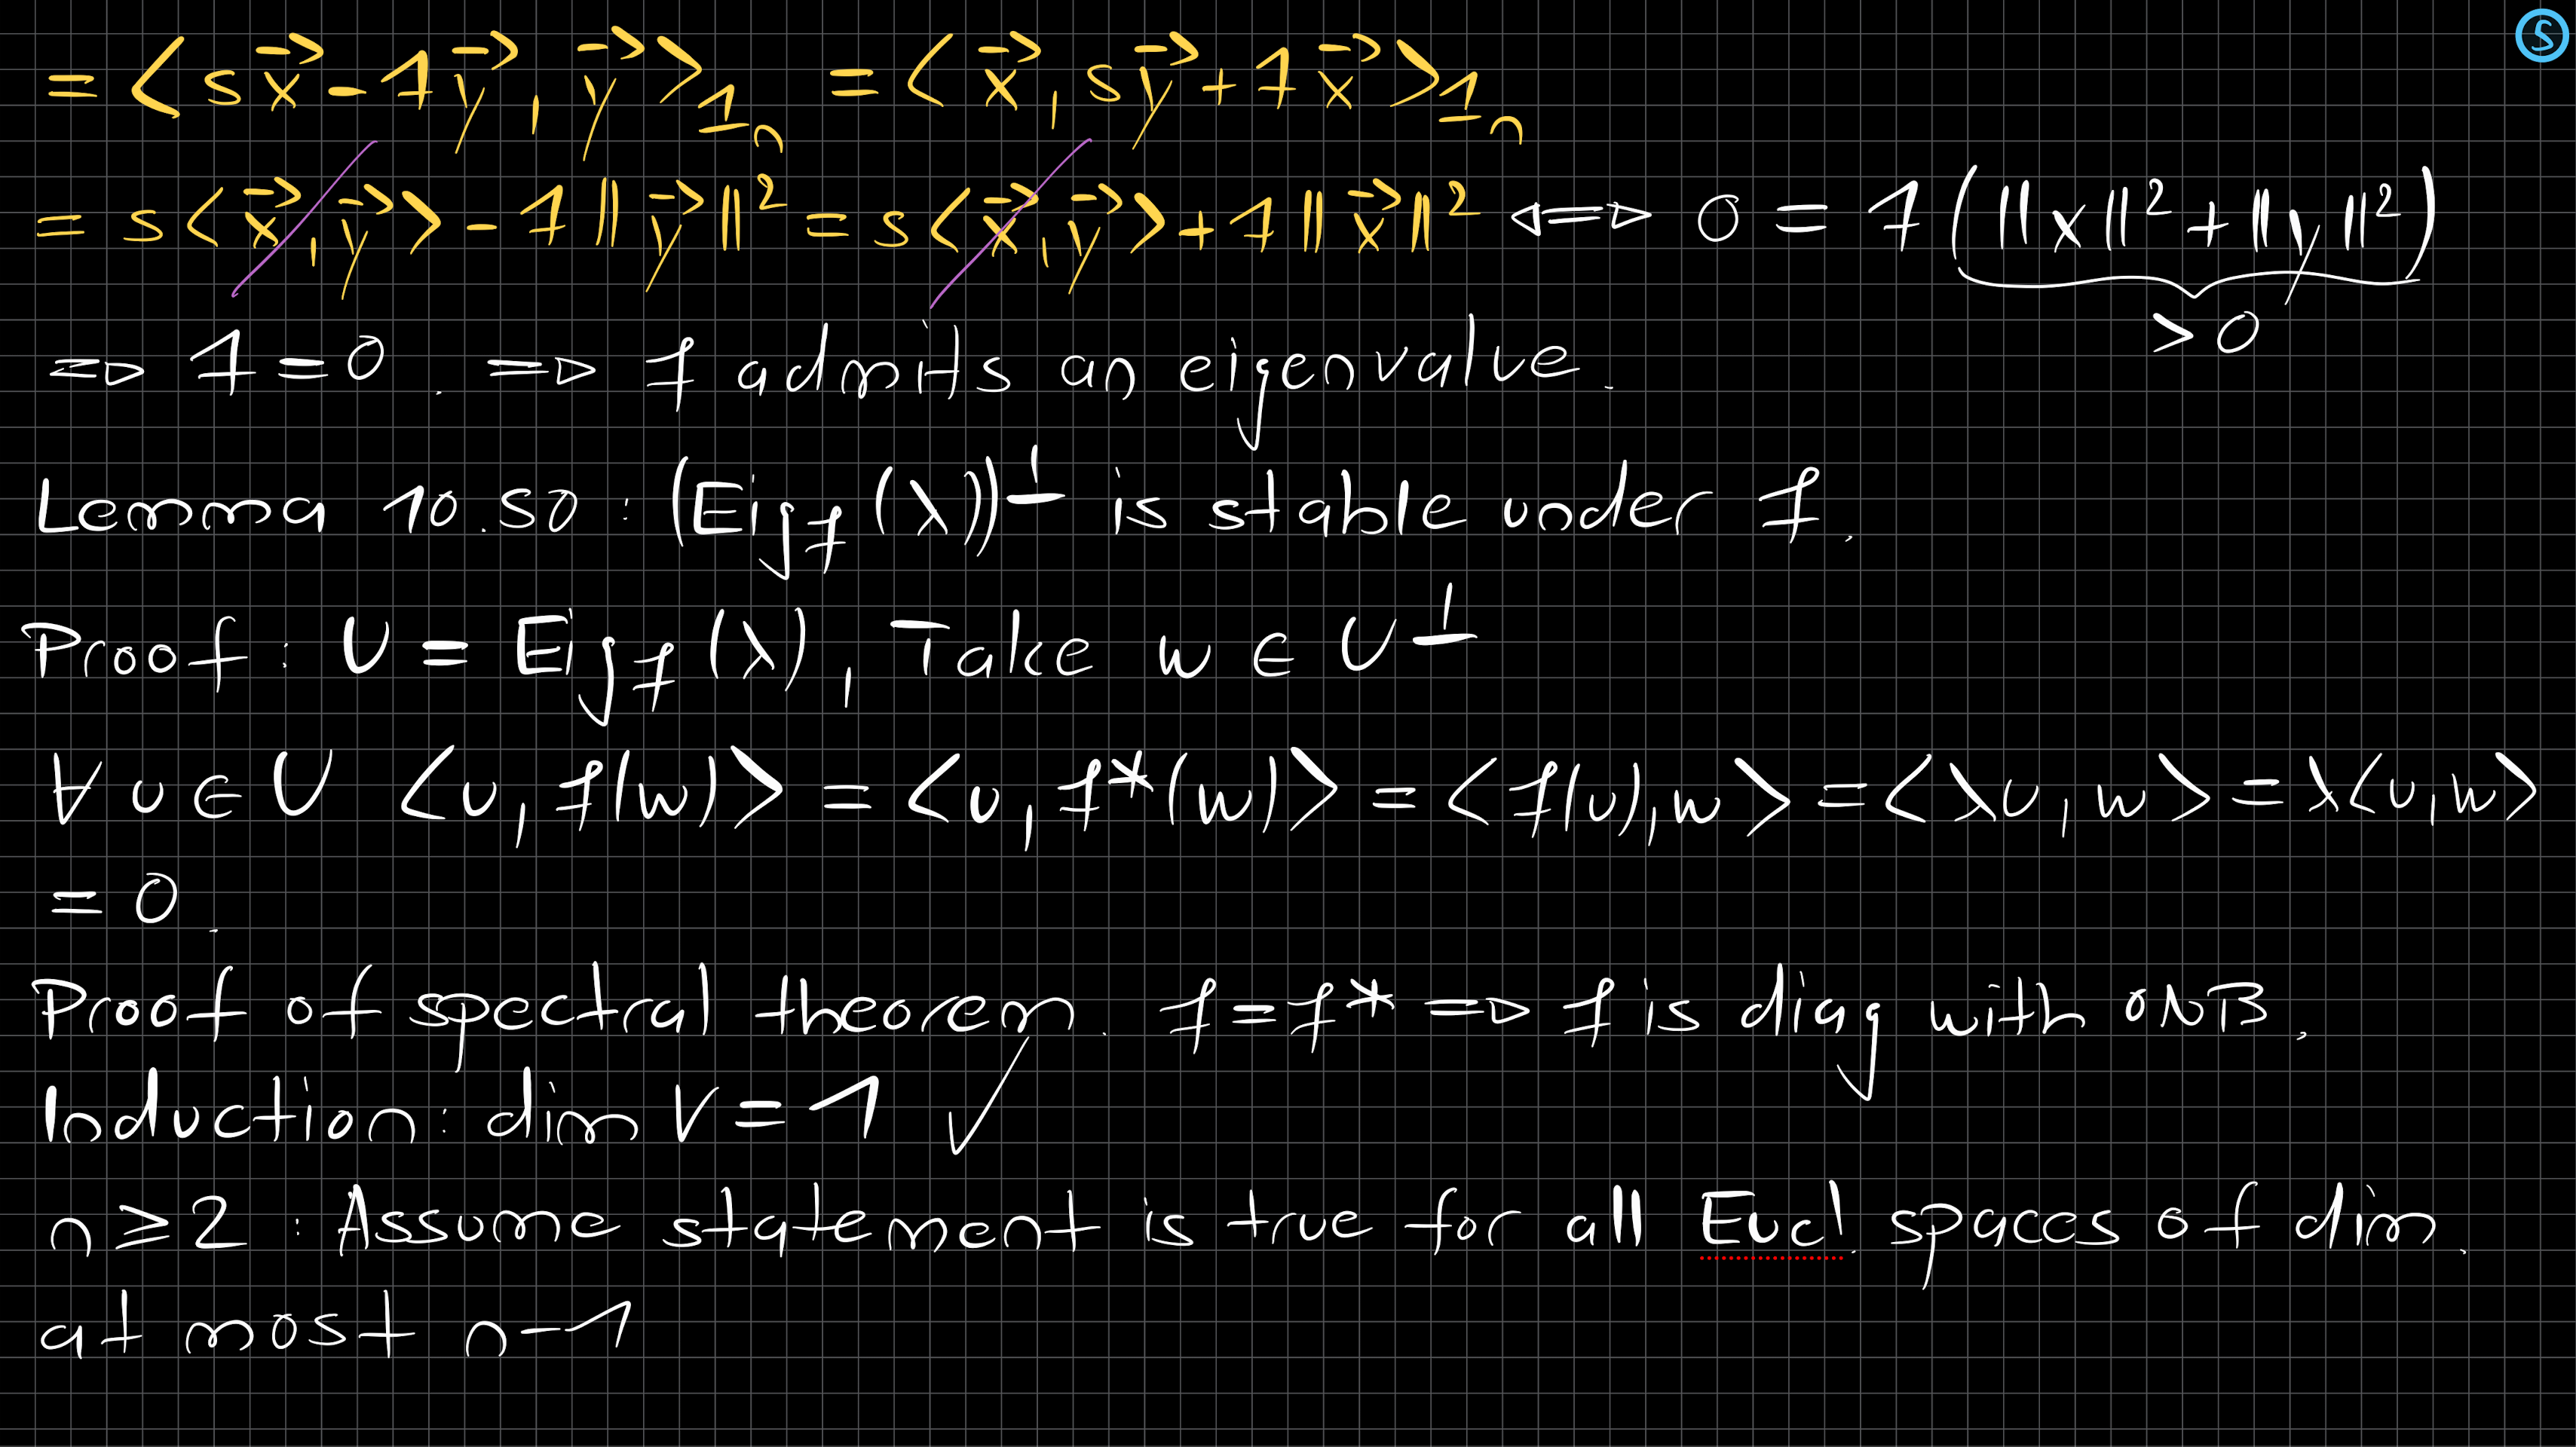 S
= <s x⃗ - t y⃗, y⃗>_{1_n} = <x⃗, s y⃗ + t x⃗>_{1_n}
= s<x⃗, y⃗> - t ||y⃗||² = s<x⃗, y⃗> + t ||x⃗||² ⟺ 0 = t (||x||² + ||y||²)
> 0
⇒ t = 0. ⇒ f admits an eigenvalue.
Lemma 10.50: (Eig_f(λ))^⊥ is stable under f.
Proof: U = Eig_f(λ), Take w ∈ U^⊥
∀ u ∈ U <u, f(w)> = <u, f*(w)> = <f(u), w> = <λu, w> = λ<u, w>
= 0.
Proof of spectral theorem. f = f* ⇒ f is diag with ONB.
Induction: dim V = 1 ✓
n ≥ 2: Assume statement is true for all Eucl. spaces of dim.
at most n-1